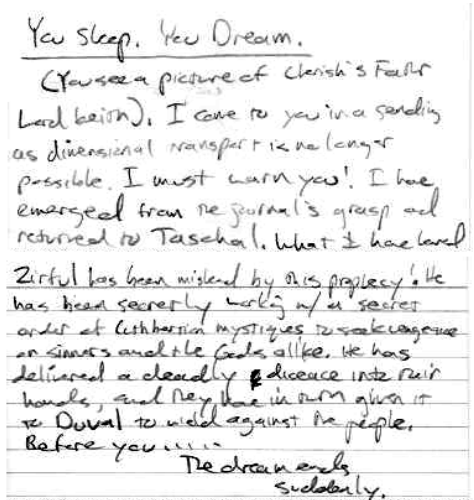 You Sleep. You Dream.
(You see a picture of Cherish's Father
Lord Keith). I come to you in a sending
as dimensional transport is no longer
possible. I must warn you! I have
emerged from the journal's grasp and
returned to Tascha. What I have learned
Zirful has been mislead by this prophecy! He
has been secretly working w/ a secret
order of Cuthbertian mystiques to seek vengeance
on sinners and the Gods alike. He has
delivered a deadly diceace into their
hands, and they have in turn given it
to Duval to wield against the people.
Before you.....
The dream ends
suddenly.